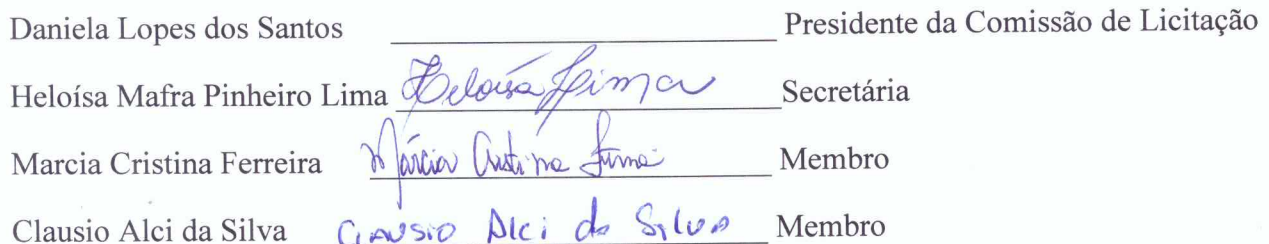 Daniela Lopes dos Santos Presidente da Comissão de Licitação
Heloísa Mafra Pinheiro Lima Heloísa Lima Secretária
Marcia Cristina Ferreira Márcia Cristina Membro
Clausio Alci da Silva Clausio Alci da Silva Membro